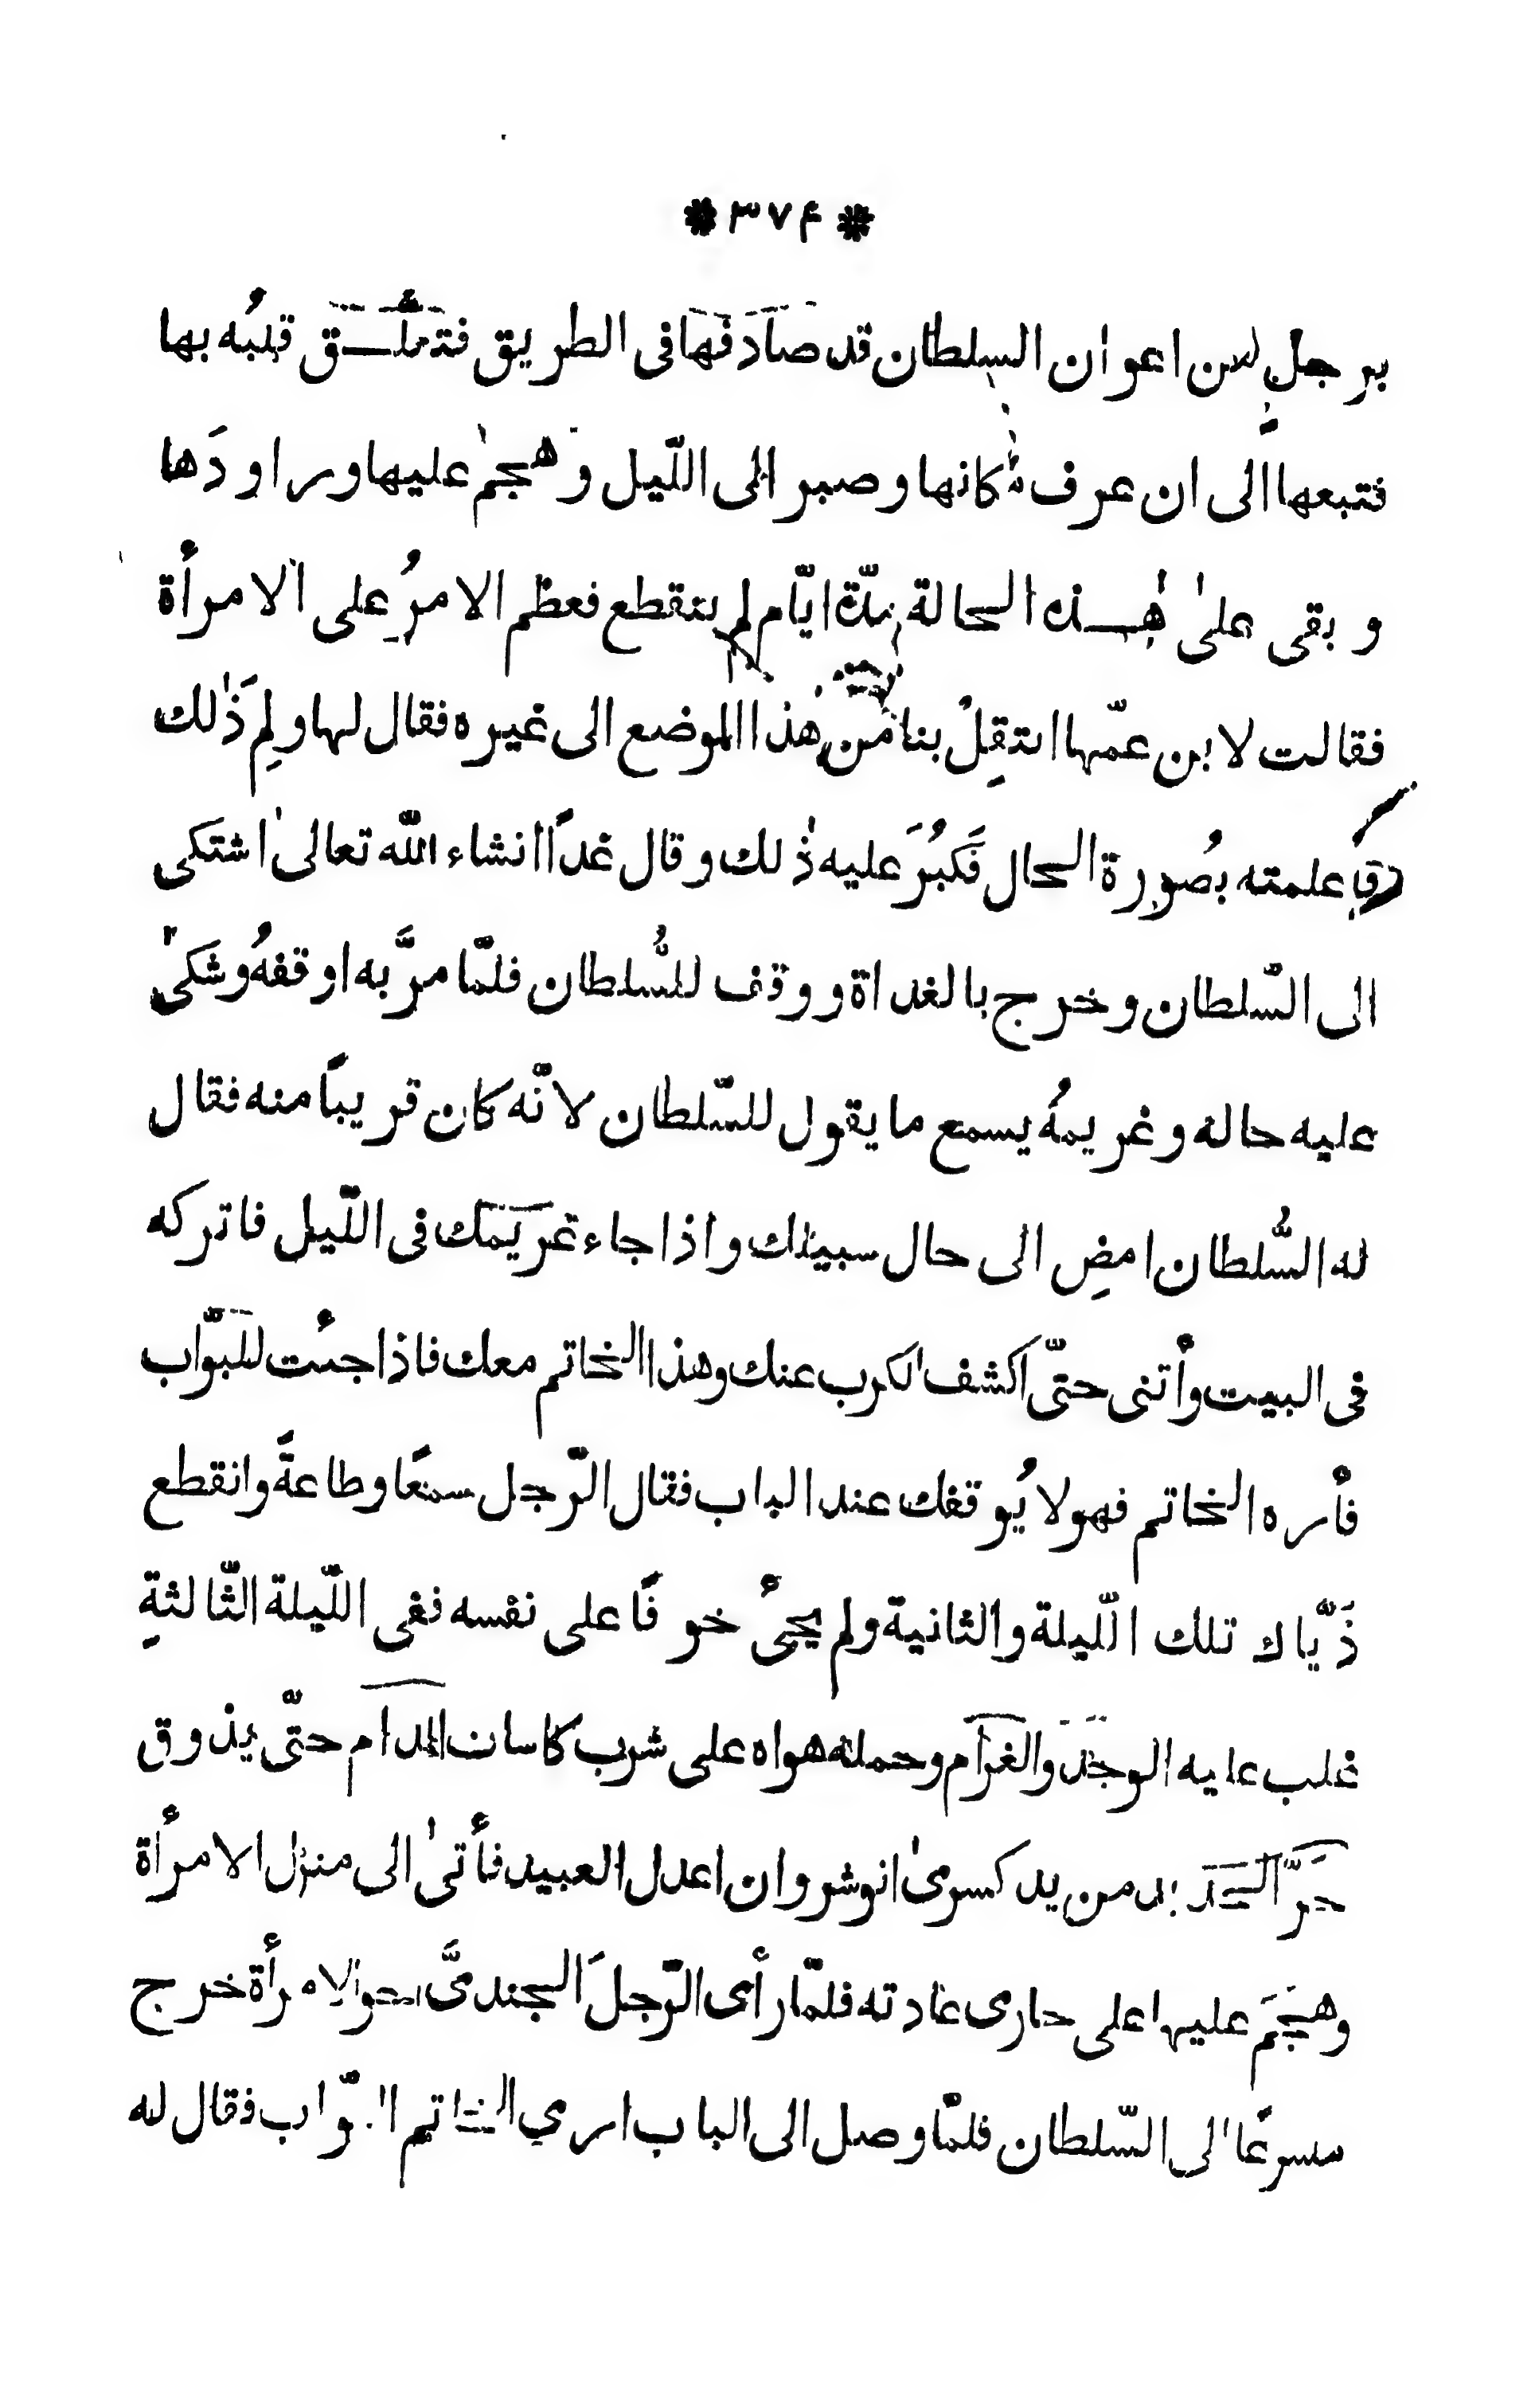 * ٣٧۴ *
برجلٍ من اعوان السلطان قد صَادَفَهَا فى الطريق فتعلَّق قلبُه بها
فتبعها الى ان عرف مكانها وصبر الى اللّيل وَهجم عليها وراودَها
وبقى علىٰ هٰذه الحالة مدّة ايّام لم ينقطع فعظم الامرُ على الامرأة
فقالت لابن عمّها انتقِلْ بنا من هٰذا الموضع الى غيره فقال لها ولِمَ ذٰلك
فاعلمته بصُورة الحال فَكبُرَ عليه ذٰلك وقال غداً انشاء اللّٰه تعالىٰ اشتكى
الى السّلطان وخرج بالغداة ووقف للسُّلطان فلمّا مرَّ به اوقفهُ وشَكىٰ
عليه حاله وغريمهُ يسمع ما يقول للسّلطان لانّه كان قريباً منه فقال
له السُّلطان امضِ الى حال سبيلك واذا جاء غَرَيَمَك فى اللّيل فاتركه
فى البيت وأتنى حتّى اكشف الكرب عنك وهذا الخاتم معك فاذا جئت للبَوّاب
فأره الخاتم فهو لا يُوقفك عند الباب فقال الرّجل سمعًا وطاعةً وانقطع
ذَيّاك تلك اللّيلة والثانية ولم يجئ خوفًا على نفسه ففى اللّيلة الثّالثةِ
غلب عليه الوجَد والغرَام وحمله هواه على شرب كاسات المدام حتّى يذوق
حَرَّ الحديد من يد كسرىٰ انوشروان اعدل العبيد فأتىٰ الى منزل الامرأة
وهجَمَ عليها على جارى عادته فلمّا رأى الرّجلَ الجندىَّ نحو الامرأة خرج
مسرعًا الى السّلطان فلمّا وصل الى الباب ارى الخاتم البوّاب فقال له